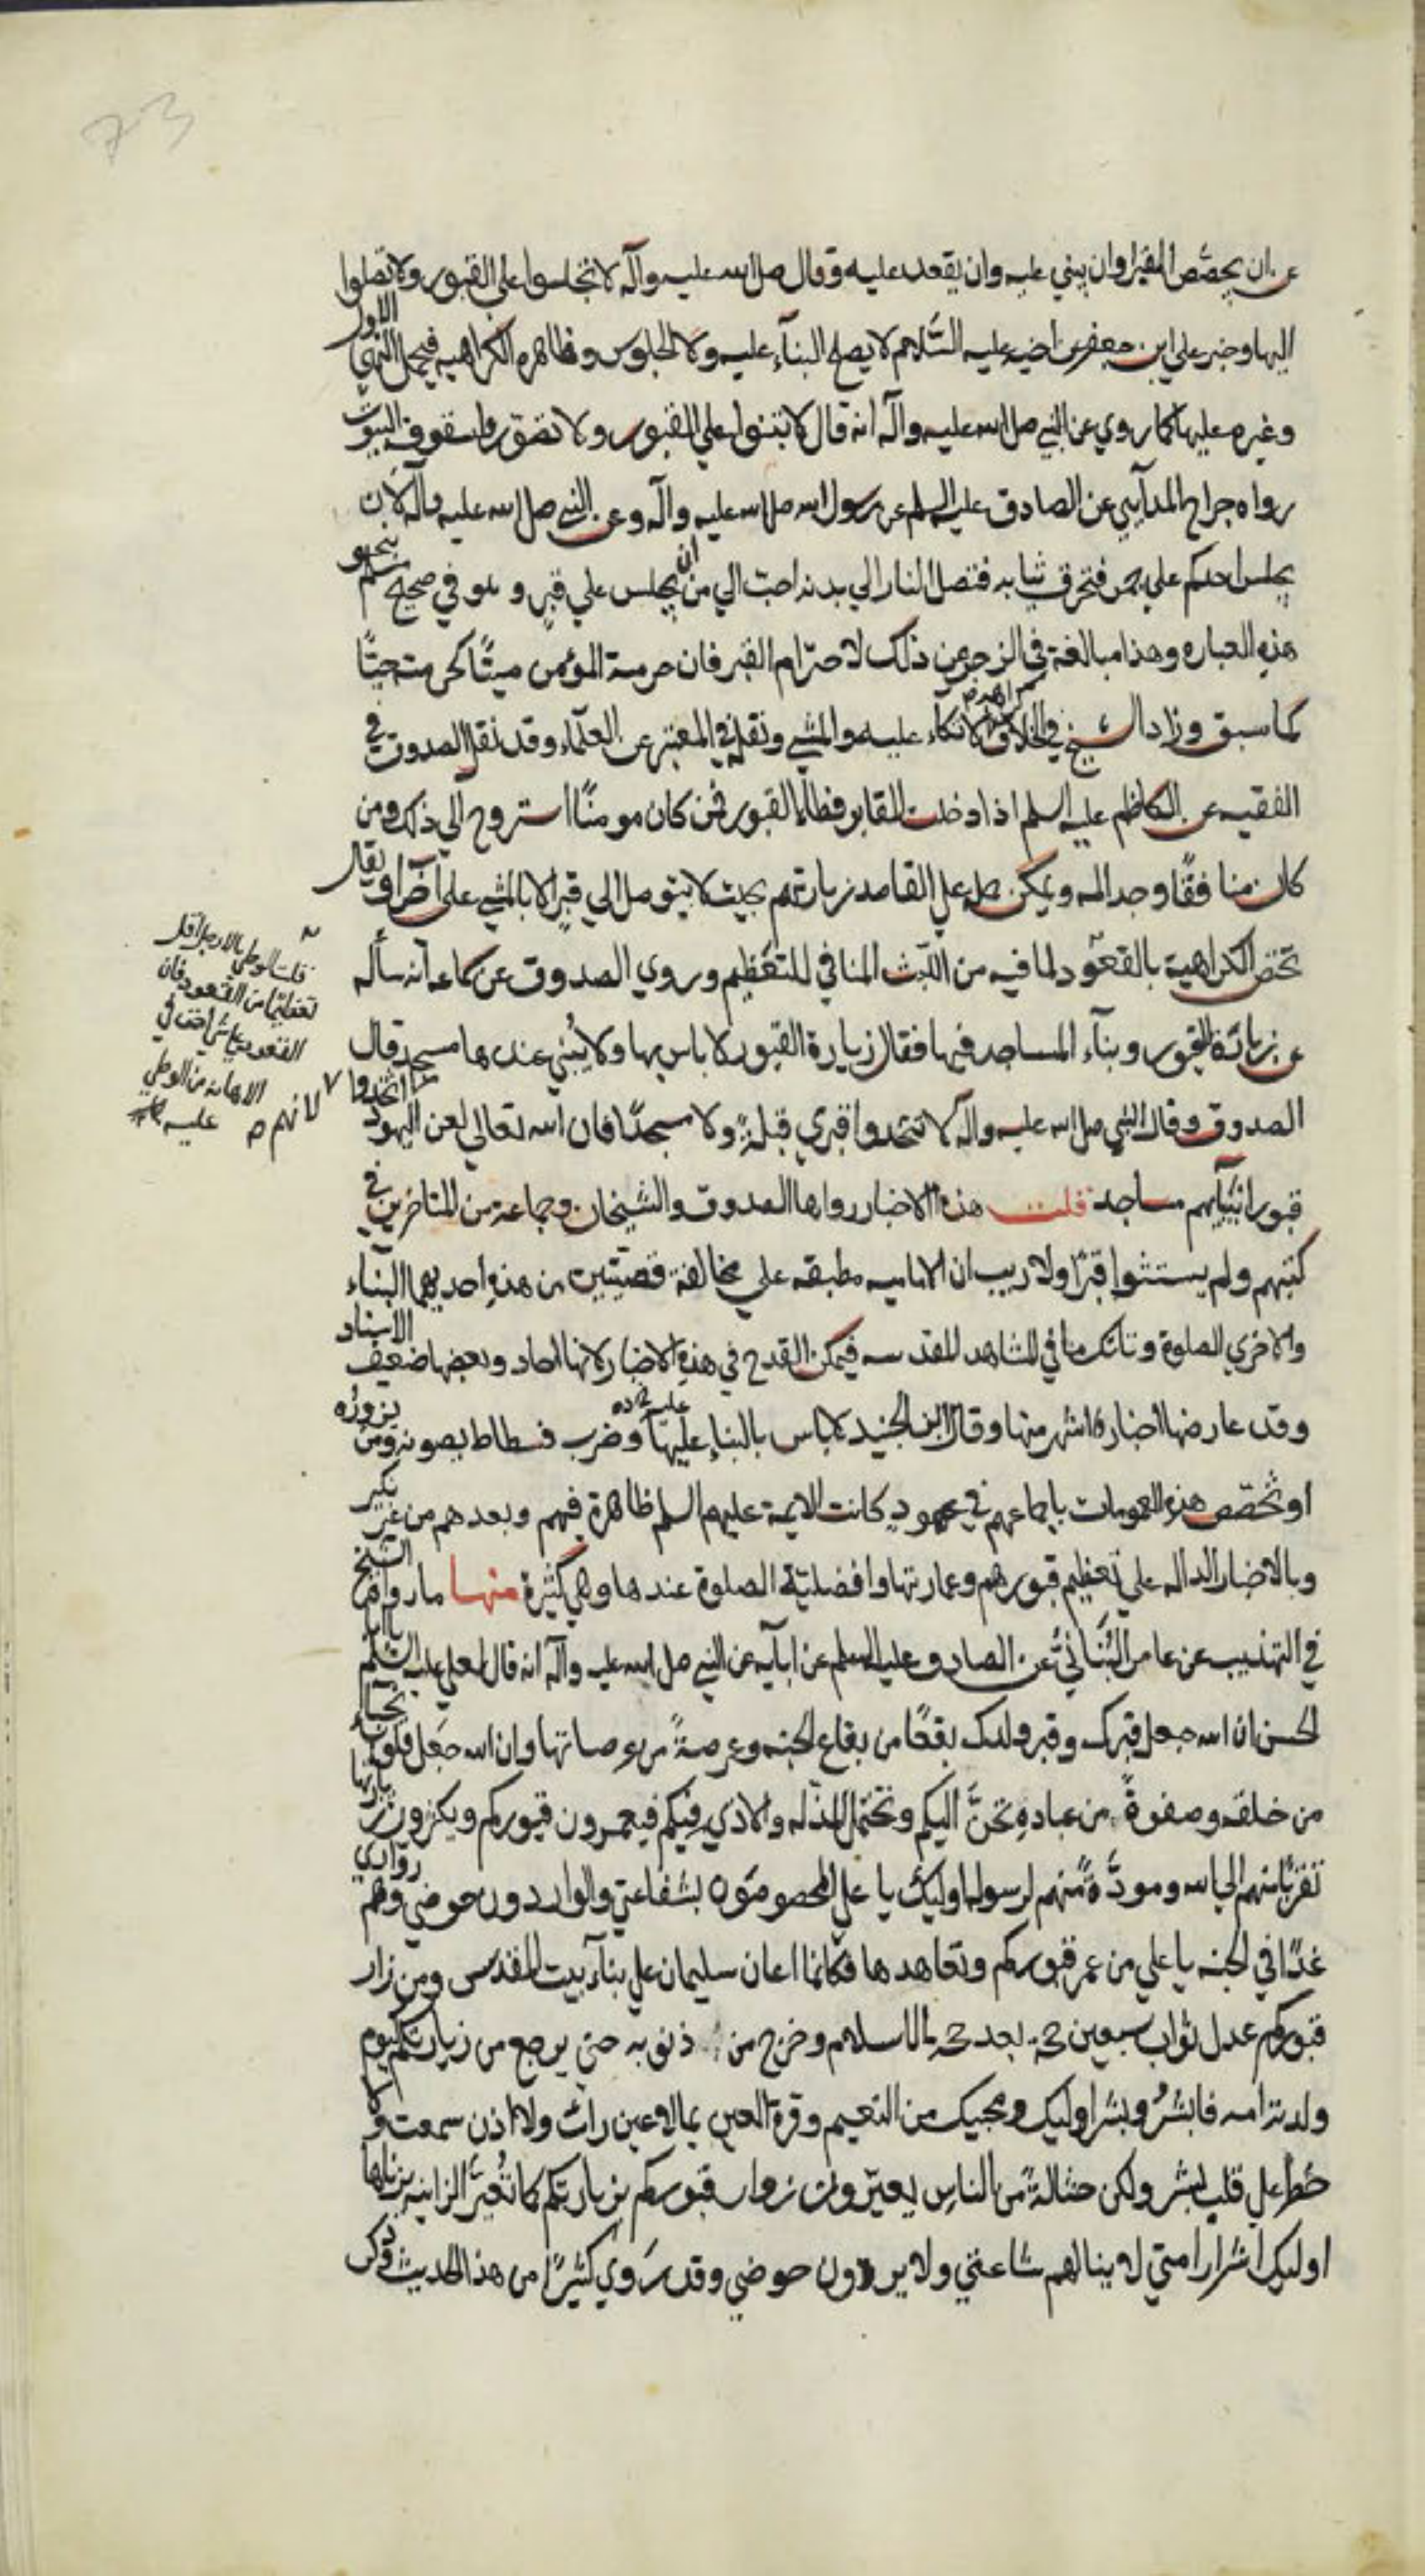 73
عن ان يجصّص القبر او ان يبني عليه وان يقعد عليه وقال صلي الله عليه وآله لا تجلسوا علي القبور ولا تصلوا
اليها وخبر علي ابن جعفر عن اخيه عليه السّلام لا يصلح البنآء عليه ولا الجلوس وظاهره الكراهيه فيحمل النهي الاول
وغيره عليها كما روي عن النبي صلي الله عليه وآله انه قال لا تبنوا علي القبور ولا تصوّروا سقوف البيوت
رواه جراح المدآيني عن الصادق عليه السلم عن رسول الله صلي الله عليه وآله وعن النبي صلي الله عليه وآله لان
يجلس احدكم علي جمر فتحرق ثيابه فتصل النار الي بدنه احب الي من ان يجلس علي قبر وهو في صحيح مسلم بنحو
هذه العباره وهذا مبالغة في الزجر عن ذلك لاحترام القبر فان حرمة المؤمن ميتًا كحرمته حيًّا
كما سبق وزاد الشيخ في الخلاف كراهة الاتكآء عليه والمشي ونقله في المعتبر عن العلمآء وقد نقل الصدوق في
الفقيه عن الكاظم عليه السلم اذا دخلت المقابر فطأ القبور فمن كان مومنًا استروح الي ذلك ومن
كان منافقًا وجد المه ويمكن حمله علي القاصد زيارتهم بحيث لا يتوصل الي قبرٍ الا بالمشي علي آخر او يقال
تختص الكراهية بالقعود لما فيه من اللبث المنافي للتعظيم وروي الصدوق عن سماعه انه سأله
عن زيارة القبور وبنآء المساجد فيها فقال زيارة القبور لا باس بها ولا يُبني عندها مسجد قال
الصدوق وقال النبي صلي الله عليه وآله لا تتخذوا قبري قبلةً ولا مسجدًا فان الله تعالي لعن اليهود اتخذوا
قبور انبيآيهم مساجد قلت هذه الاخبار رواها الصدوق والشيخان وجماعة من المتاخرين في
كتبهم ولم يستثنوا قبرًا ولا ريب ان الاماميه مطبقه علي مخالفة قضيتين من هذه احديهما البناء
والاخري الصلوة وتانك ما في المشاهد المقدسه فيمكن القدح في هذه الاخبار لانها احاد وبعضها ضعيف الاسناد
وقد عارضها اخبار اشهر منها وقال ابن الجنيد لا باس بالبناء عليها وضرب فسطاط يصونه ومن يزوره
او تخصّص هذه العمومات باجماعهم في عهودٍ كانت الايمة عليهم السلم ظاهرة فيهم وبعدهم من غير نكير
وبالاخبار الداله علي تعظيم قبورهم وعمارتها وافضلية الصلوة عندها وهي كثيرة منها ما رواه الشيخ
في التهذيب عن عامر البُنَاني عن الصادق عليه السلم عن ابآيه عن النبي صلي الله عليه وآله انه قال لعلي عليه السلم يا ابا
الحسن ان الله جعل قبرك وقبر ولدك بقعًا من بقاع الجنه وعرصةً من عرصاتها وان الله جعل قلوب نجبا
من خلقه وصفوةً من عباده تحنّ اليكم وتحتمل المذله والاذي فيكم فيعمرون قبوركم ويكثرون زيارتها
تقربًا منهم الي الله ومودّةً منهم لرسوله اوليك يا علي المخصوصون بشفاعتي والواردون حوضي وهم زواري
غدًا في الجنه يا علي من عمر قبوركم وتعاهدها فكانما اعان سليمان علي بنآء بيت المقدس ومن زار
قبوركم عدل ثواب سبعين حجة بعد حجة الاسلام وخرج من ذنوبه حتي يرجع من زيارتكم كيوم
ولدته امه فابشرُ وبشر اوليك ومحبيك من النعيم وقرة العين بما لا عين رات ولا اذن سمعت ولا
خطر علي قلب بشر ولكن حثالةً من الناس يعيّرون زوار قبوركم بزيارتكم كما تُعيَّر الزانيه بزناها
اوليك اشرار امتي لا ينالهم شاعتي ولا يردون حوضي وقد روي كثيرًا من هذا الحديث وذكر
قلت الوطي بالارجل اقل
تعظيما من القعود فان
القعود علي شي اخف في
الاهانه من الوطي
عليه
لانهم